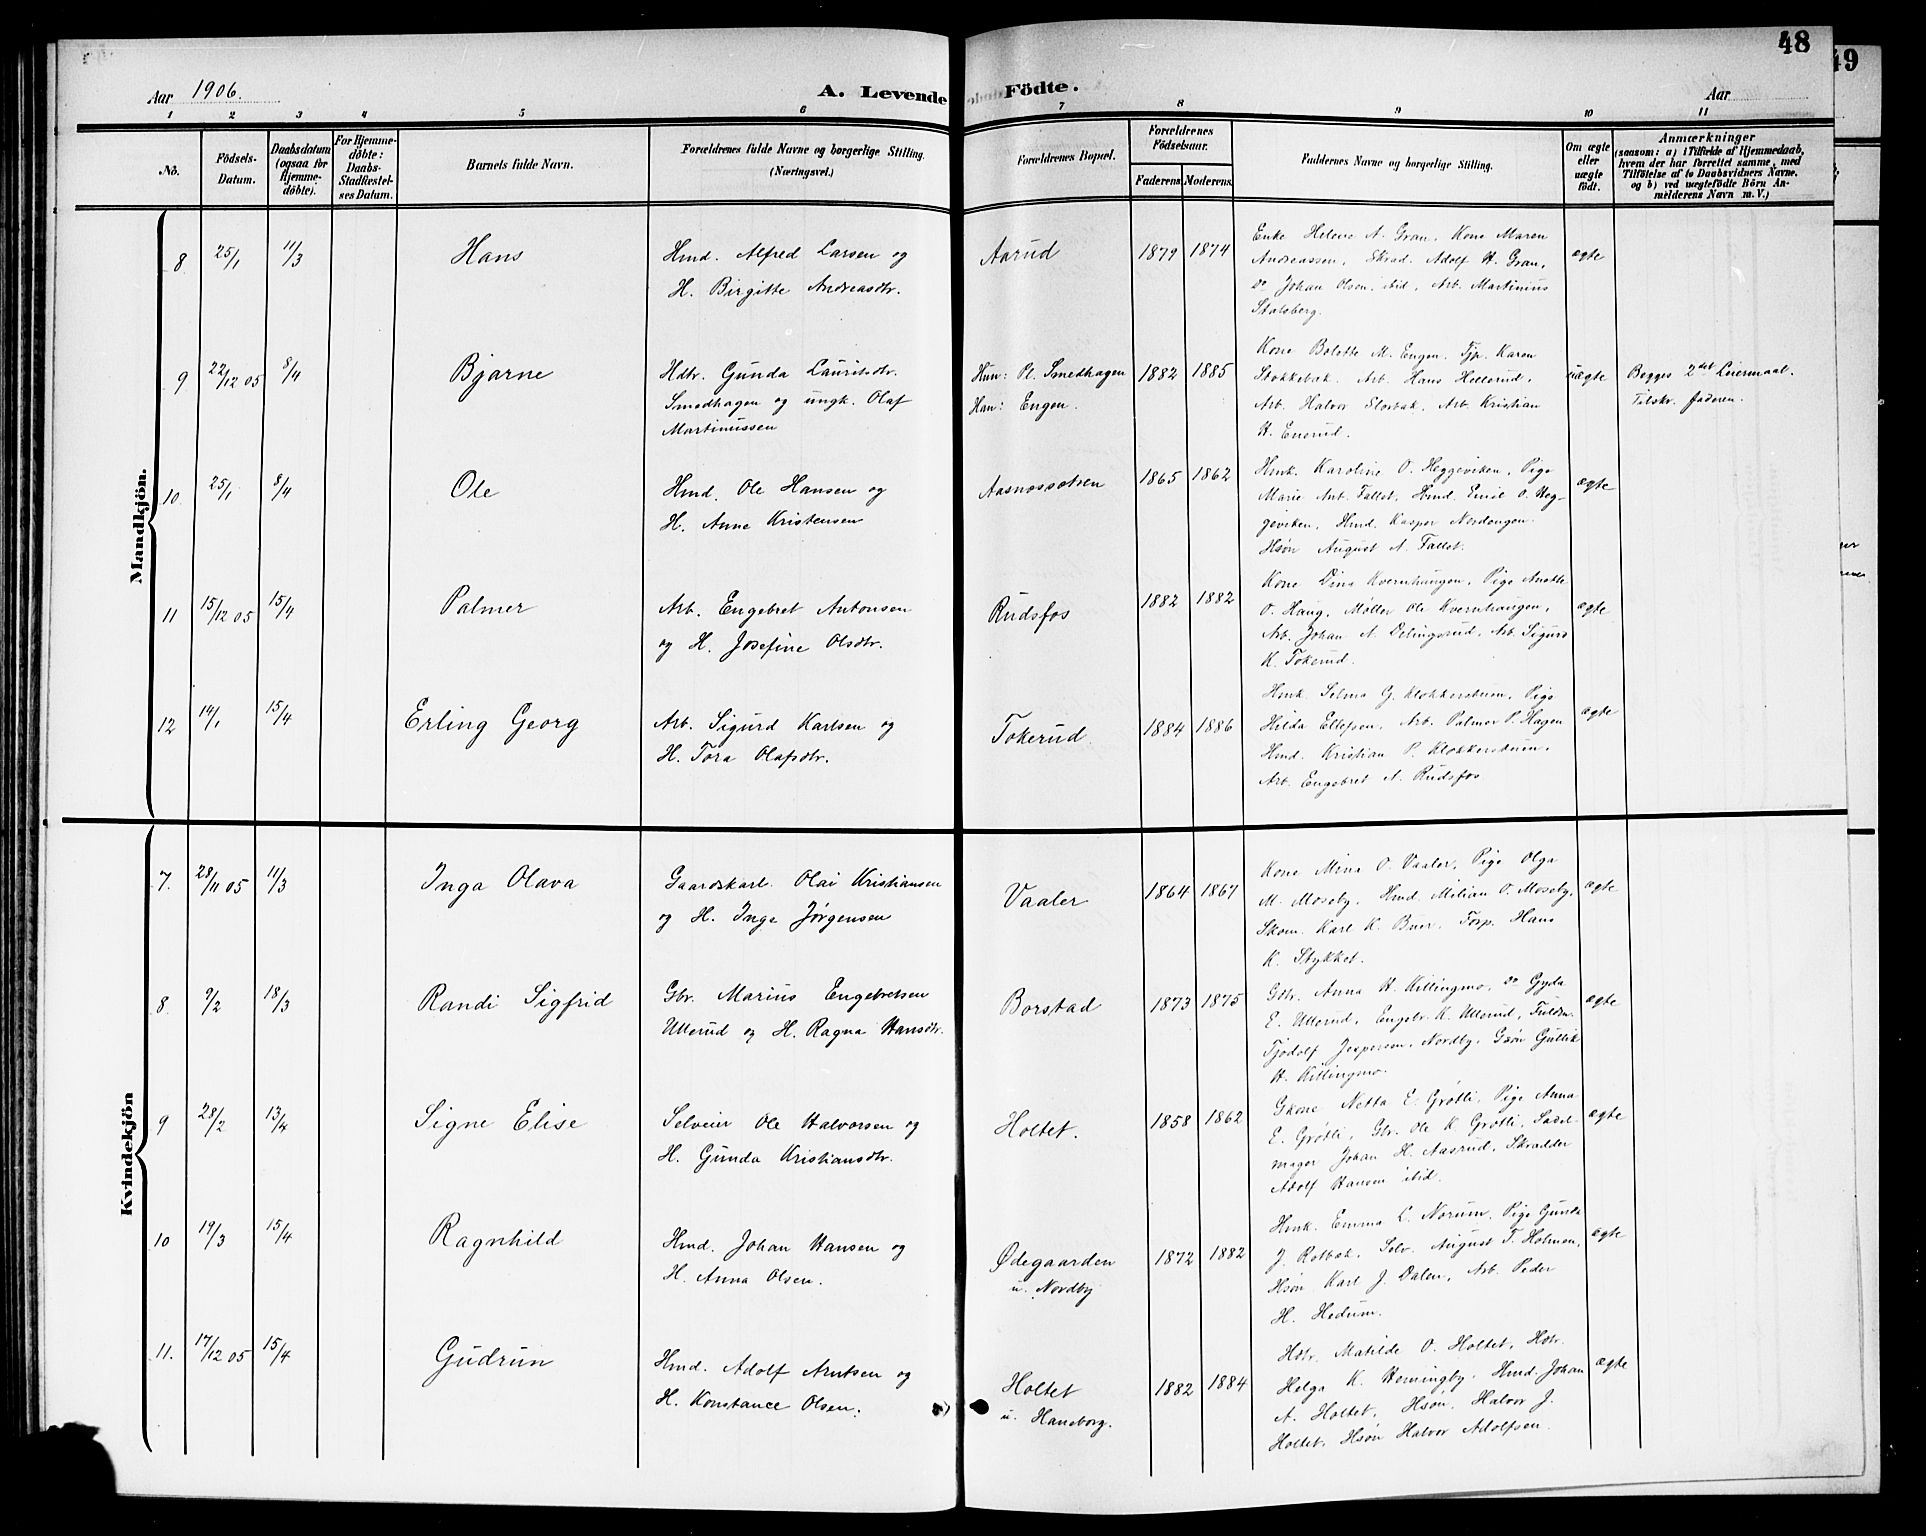 48
49
Aar 1906.
A. Levende Födte.
Aar
1 2 3 4 5 6 7 8 9 10 11
No.
Födsels-Datum.
Daabsdatum (ogsaa for Hjemme-döbte).
For Hjemme-döbte: Daabs-Stadfæstel-ses Datum.
Barnets fulde Navn.
Forældrenes fulde Navne og borgerlige Stilling. (Næringsvei.)
Forældrenes Bopæl.
Forældrenes Födselsaar.
Faderens Moderens
Faddernes Navne og borgerlige Stilling.
Om ægte eller uægte födt.
Anmærkninger
(saasom: a) i Tilfælde af Hjemmedaab,
hvem der har forrettet samme, med
Tilföielse af to Daabsvidners Navne,
og b) ved uægtefödte Börn An-
melderens Navn m. V.)
Mandkjön.
8 25/1 11/3 Hans
Hmd. Alfred Larsen og
H. Birgitte Andreasdtr.
Aarud 1879 1874
Enke Helene A. Gran, Kone Maren
Andreassen, Skrad. Adolf H. Gran,
Do Johan Olsen ibid, Arb. Martinius
Stalsberg.
ægte
9 22/12 05 8/4 Bjarne
Hdtr. Gunda Lauritsdtr.
Smedhagen og ungk. Olaf
Martinussen
Hun: Pl. Smedhagen
Han: Engen.
1882 1885
Kone Bolette M. Engen, Tjp. Karen
Stokkebak, Arb. Hans Hellerud,
Arb. Halvor Storbak, Arb. Kristian
H. Enerud.
uægte
Begges 2det Leiermaal.
Tilskr. faderen.
10 25/1 8/4 Ole
Hmd. Ole Hansen og
H. Anne Kristensen
Aasnessætren 1865 1862
Hmk. Karoline O. Heggeviken, Pige
Marie Ant. Fallet, Hmd. Emil O. Heg-
geviken, Hmd. Kasper Nordengen
Hsøn August A. Fallet.
ægte
11 15/12 05 15/4 Palmer
Arb. Engebret Antonsen
og H. Josefine Olsdtr.
Rudsfos 1882 1882
Kone Dina Kvernhaugen, Pige Anette
O. Haug, Møller Ole Kvernhaugen,
Arb. Johan A. Delingsrud, Arb. Sigurd
K. Tokerud.
ægte
12 14/1 15/4 Erling Georg
Arb. Sigurd Karlsen og
H. Tora Olafsdtr.
Tokerud 1884 1886
Hmk. Selma G. Klokkerstuen, Pige
Hilda Ellefsen, Arb. Palmer P. Hagen
Hmd. Kristian P. Klokkerstuen,
Arb. Engebret A. Rudsfos
ægte
Kvindekjön
7. 28/11 05 11/3 Inga Olava
Gaardskarl. Olai Kristiansen
og H. Inga Jørgensen
Vaaler 1864 1867
Kone Mina O. Vaaler, Pige Olga
M. Moseby, Hmd. Milian O. Moseby,
Skom. Karl K. Buer, Forp. Hans
K. Stykket.
ægte
8 9/2 18/3 Randi Sigfrid
Gbr. Marius Engebretsen
Ullerud og H. Ragna Hansdtr.
Borstad 1873 1875
Gdtr. Anna H. Killingmo, Do Gyda
E. Ullerud, Engebr. K. Ullerud, Fuldm.
Tjodolf Jespersen, Nordby, Gsøn Gullik
H. Killingmo.
ægte
9 28/2 13/4 Signe Elise
Selveier Ole Halvorsen og
H. Gunda Kristiansdtr.
Holtet. 1858 1862
Gkone Netta E. Grøtli, Pige Anna
E. Grøtli, Gbr. Ole K. Grøtli, Sadel-
mager Johan H. Aasrud, Skrædder
Adolf Hansen ibid.
ægte
10 19/3 15/4 Ragnhild
Hmd. Johan Hansen og
H. Anna Olsen.
Ødegaarden
u. Nordby
1872 1882
Hmk. Emma L. Norum, Pige Gunda
J. Rotbak, Selv. August T. Holmen,
Hsøn Karl J. Dalen, Arb. Peder
H. Hedum.
ægte
11. 17/12 05 15/4 Gudrun
Hmd. Adolf Arntsen og
H. Konstance Olsen.
Holtet
u. Haneborg.
1882 1884
Hdtr. Matilde O. Holtet, Hdtr.
Helga K. Henningby, Hmd. Johan
A. Holtet, Hsøn. Halvor J.
Holtet, Hsøn Halvor Adolfsen.
ægte